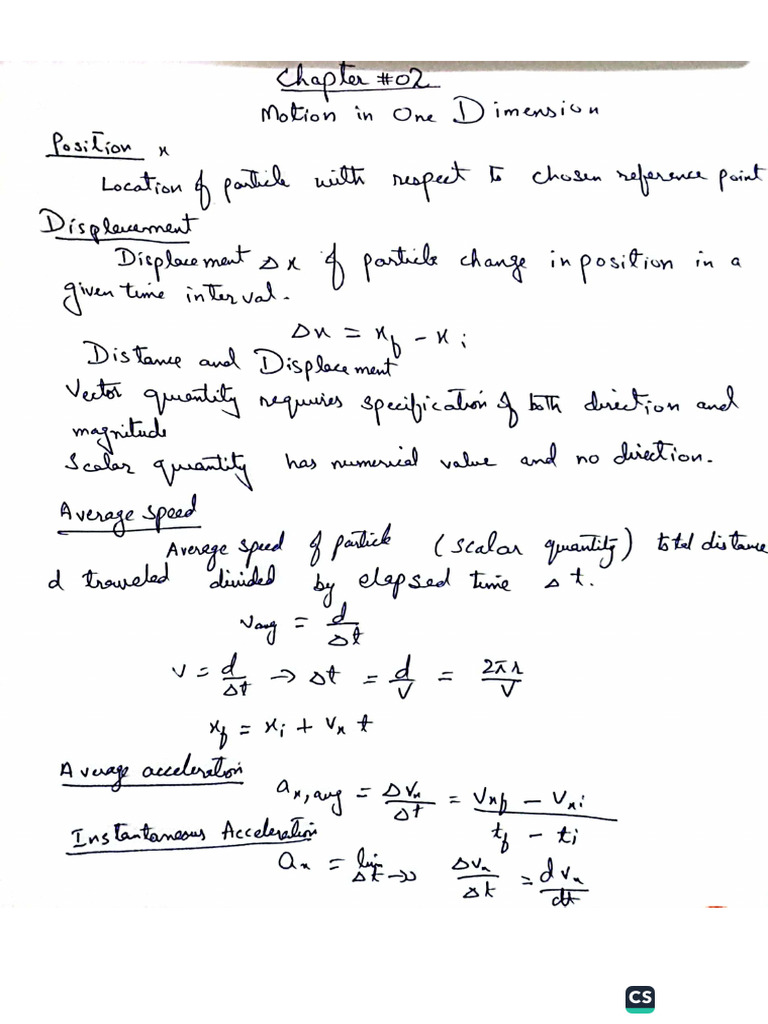 Chapter #02
Motion in One Dimension
Position x
Location of particle with respect to chosen reference point
Displacement
Displacement Δx of particle change in position in a
given time interval.
Δx = xf - xi
Distance and Displacement
Vector quantity requires specification of both direction and
magnitude
Scalar quantity has numerical value and no direction.
Average speed
Average speed of particle (scalar quantity) total distance
d traveled divided by elapsed time Δt.
vavg = d/Δt
v = d/Δt → Δt = d/v = 2πr/v
xf = xi + vx t
Average acceleration
ax,avg = Δvx/Δt = vxf - vxi / tf - ti
Instantaneous Acceleration
ax = lim Δt→0 Δvx/Δt = dvx/dt
CS